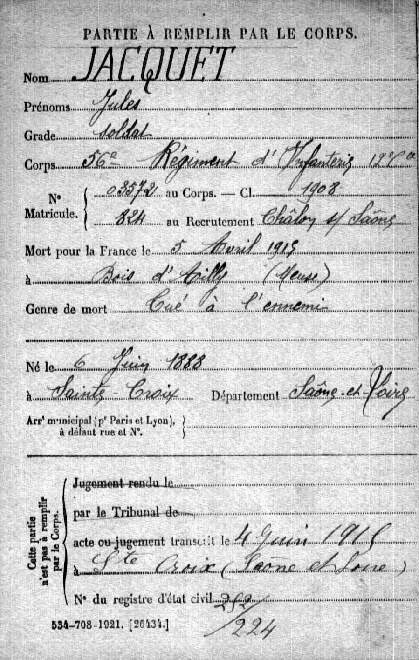 PARTIE À REMPLIR PAR LE CORPS.
Nom JACQUET
Prénoms Jules
Grade soldat
Corps 56e Régiment d'Infanterie
N° Matricule. 03572 au Corps. — Cl. 1908
824 au Recrutement Châlon s/ Saône
Mort pour la France le 5 Avril 1915
à Bois d'Ailly (Meuse)
Genre de mort Tué à l'ennemi
Né le 6 Juin 1888
à Sainte Croix Département Saône-et-Loire
Arrt municipal (pr Paris et Lyon), à défaut rue et N°.
Cette partie n'est pas à remplir par le Corps.
Jugement rendu le
par le Tribunal de
acte ou jugement transcrit le 4 Juin 1915
à Ste Croix (Saône et Loire)
N° du registre d'état civil 252/
/224
534-708-1921. [26434.]